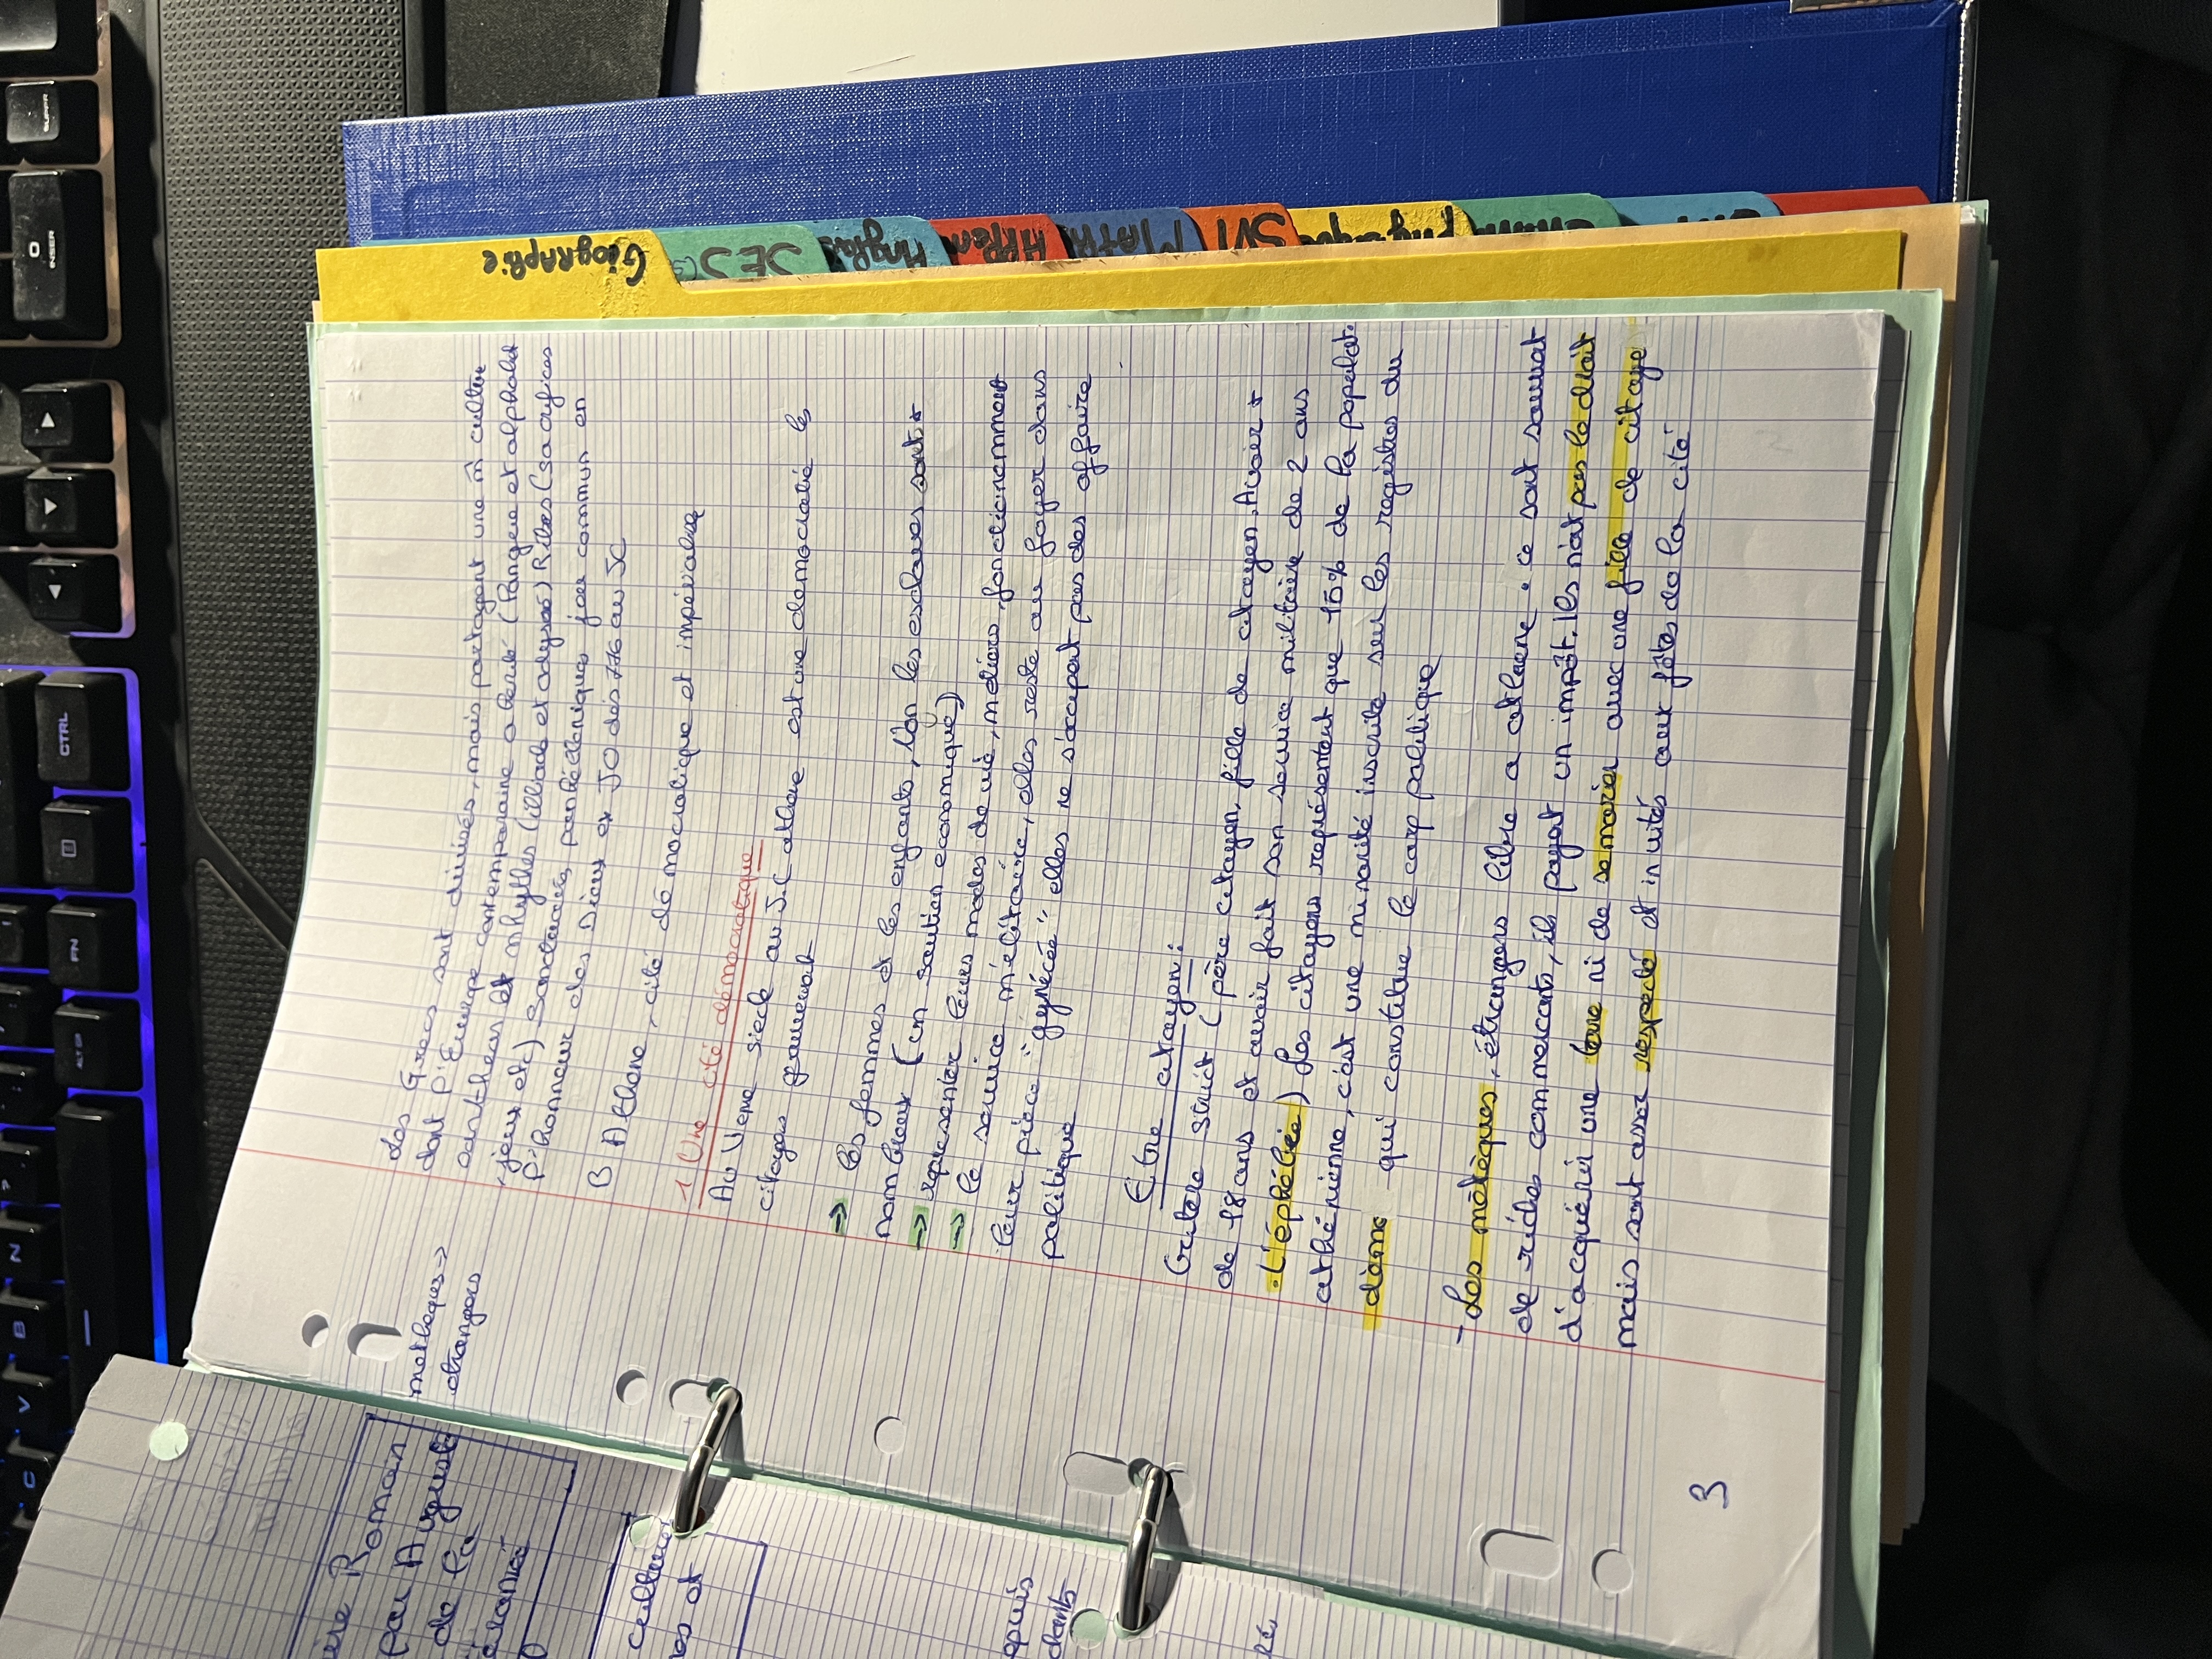 Les Grecs sont divisés, mais partagent une m̂ culture
dont l'Europe contemporaine a hérité (langue et alphabet
panthéon et mhythes (illiade et odyssé) Rites (sacrifices
jeux etc) Sanctuaires panhélleniques jeux commun en
l'honneur des Dieux ex JO dès 776 av JC
B Athène, cité démocratique et impérialiste
1. Une cité démocratique
Au Veme siecle av J.C athene est une democratie les
citoyens gouvernent
→ les femmes et les enfants, les esclaves sont +
nombreux (un soution economique)
→ representer leurs modes de vie, médiocre, fonctionnement
→ le service militaire, elles reste au foyer dans
leur pièce "gynécée" elles ne s'occupent pas des affaire
politique
Être citoyen :
Critère strict (père citoyen, fille de citoyen, Avoir +
de 18 ans et avoir fait son service militaire de 2 ans
. L'éphébie) Les citoyens représentent que 15% de la populat°
athénienne, c'est une minorité inscrite sur les registres du
dème qui constitue le corp politique
- Les métèques, étrangers libre a athene . ce sont souvent
de riches commercants, ils payent un impôt. Ils n'ont pas le droit
d'acquérir une terre ni de se marier avec une fille de citoyen
mais sont assez respecté et invités aux fêtes de la cité
metheques →
etrangers
3
Géographie
SES
Anglais
MATH
SVT
Physique
ire Romain
par Auguste
de la
culture
es et
epuis
dants
SUPPR
0
INSER
CTRL
FN
ALT GR
N
B
V
C